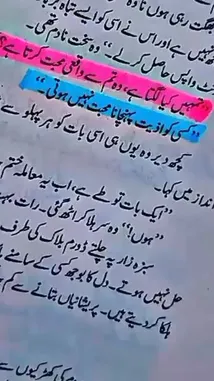 بھگت رہی ہوں تا وہ
نہیں ہے اور اس نے اسی کو ایسے تباہ بر
واپس حاصل کرلے۔" وہ سخت نادم تھی۔
"تمہیں کیا لگتا ہے، وہ تم سے واقعی محبت کرتا ہے؟
"کسی کو اذیت پہنچانا محبت نہیں ہوتی۔"
کچھ دیر وہ یوں ہی اسی بات کو ہر پہلو سے
انداز میں کہا۔
"ایک بات تو طے ہے، اب یہ معاملہ ختم
"ہوں!" وہ سر ہلا کر اٹھ گئی۔ رات بہت
سبزہ زار پہ چلتے ڈورم بلاک کی طرف
حل نہیں ہوتے۔ دل کا بوجھ کسی کے سامنے ہل
ہلکا کر دیتے ہیں۔ پریشانیاں بتانے سے کم
کھڑکیوں سے